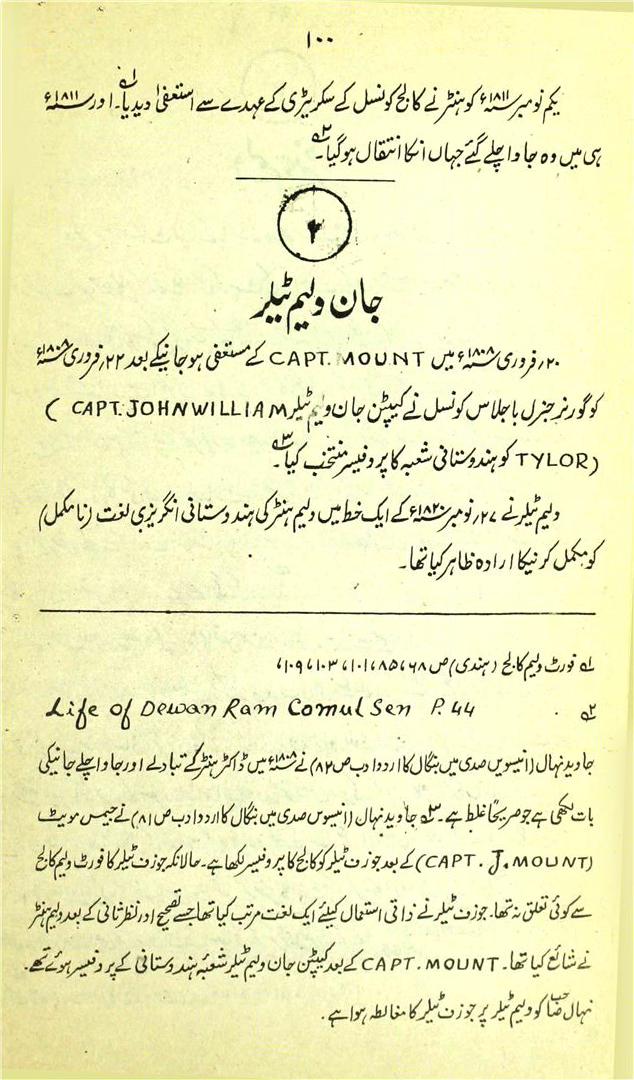 ۱۰۰
یکم نومبر ۱۸۱۱ء کو ہنٹر نے کالج کونسل کے سکریٹری کے عہدے سے استعفیٰ دیدیا۔ ۱ اور ۱۸۱۱ء
ہی میں وہ جاوا چلے گئے جہاں انکا انتقال ہوگیا۔ ۲
۴
جان ولیم ٹیلر
۲۰؍ فروری ۱۸۰۸ء میں CAPT. MOUNT کے مستعفی ہو جانیکے بعد ۲۲؍ فروری ۱۸۰۸ء
کو گورنر جنرل باجلاس کونسل نے کیپٹن جان ولیم ٹیلر CAPT. JOHN WILLIAM )
(TYLOR کو ہندوستانی شعبہ کا پروفیسر منتخب کیا۔ ۳
ولیم ٹیلر نے ۲۷؍ نومبر ۱۸۲۰ء کے ایک خط میں ولیم ہنٹر کی ہندوستانی انگریزی لغت (نامکمل)
کو مکمل کرنیکا ارادہ ظاہر کیا تھا۔
۱ فورٹ ولیم کالج (ہندی) ص ۶۸، ۸۵، ۱۰۱، ۱۰۳، ۱۰۹،
۲ Life of Dewan Ram Comul Sen P. 44
جاوید نہال (انیسویں صدی میں بنگال کا اردو ادب ص ۸۲) نے ۱۸۰۸ء میں ڈاکٹر ہنٹر کے تبادلے اور جاوا چلے جانیکی
بات لکھی ہے جو صریحاً غلط ہے۔ ۳ جاوید نہال (انیسویں صدی میں بنگال کا اردو ادب ص ۸۱) نے جیمس مویٹ
(CAPT. J. MOUNT) کے بعد جوزف ٹیلر کو کالج کا پروفیسر لکھا ہے۔ حالانکہ جوزف ٹیلر کا فورٹ ولیم کالج
سے کوئی تعلق نہ تھا۔ جوزف ٹیلر نے ذاتی استعمال کیلئے ایک لغت مرتب کیا تھا جسے تصحیح اور نظر ثانی کے بعد ولیم ہنٹر
نے شائع کیا تھا۔ CAPT. MOUNT کے بعد کیپٹن جان ولیم ٹیلر شعبۂ ہندوستانی کے پروفیسر ہوئے تھے۔
نہال صاحب کو ولیم ٹیلر پر جوزف ٹیلر کا مغالطہ ہوا ہے۔